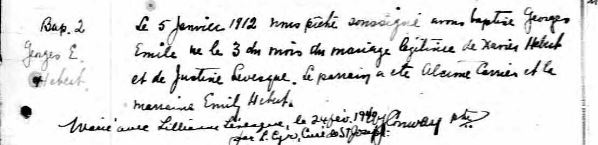 Bap. 2
Georges E.
Hebert.
Le 5 Janvier 1912 nous prêtre soussigné avons baptise Georges
Emile ne le 3 du mois du mariage legitime de Xavier Hebert
et de Justine Levesque. Le parrain a ete Alcime Carrier et la
marraine Emily Hebert.
Conway ptr.
Marié avec Lillianne Lévesque, le 24 fév. 1949
par L. Cyr, Curé St Joseph.